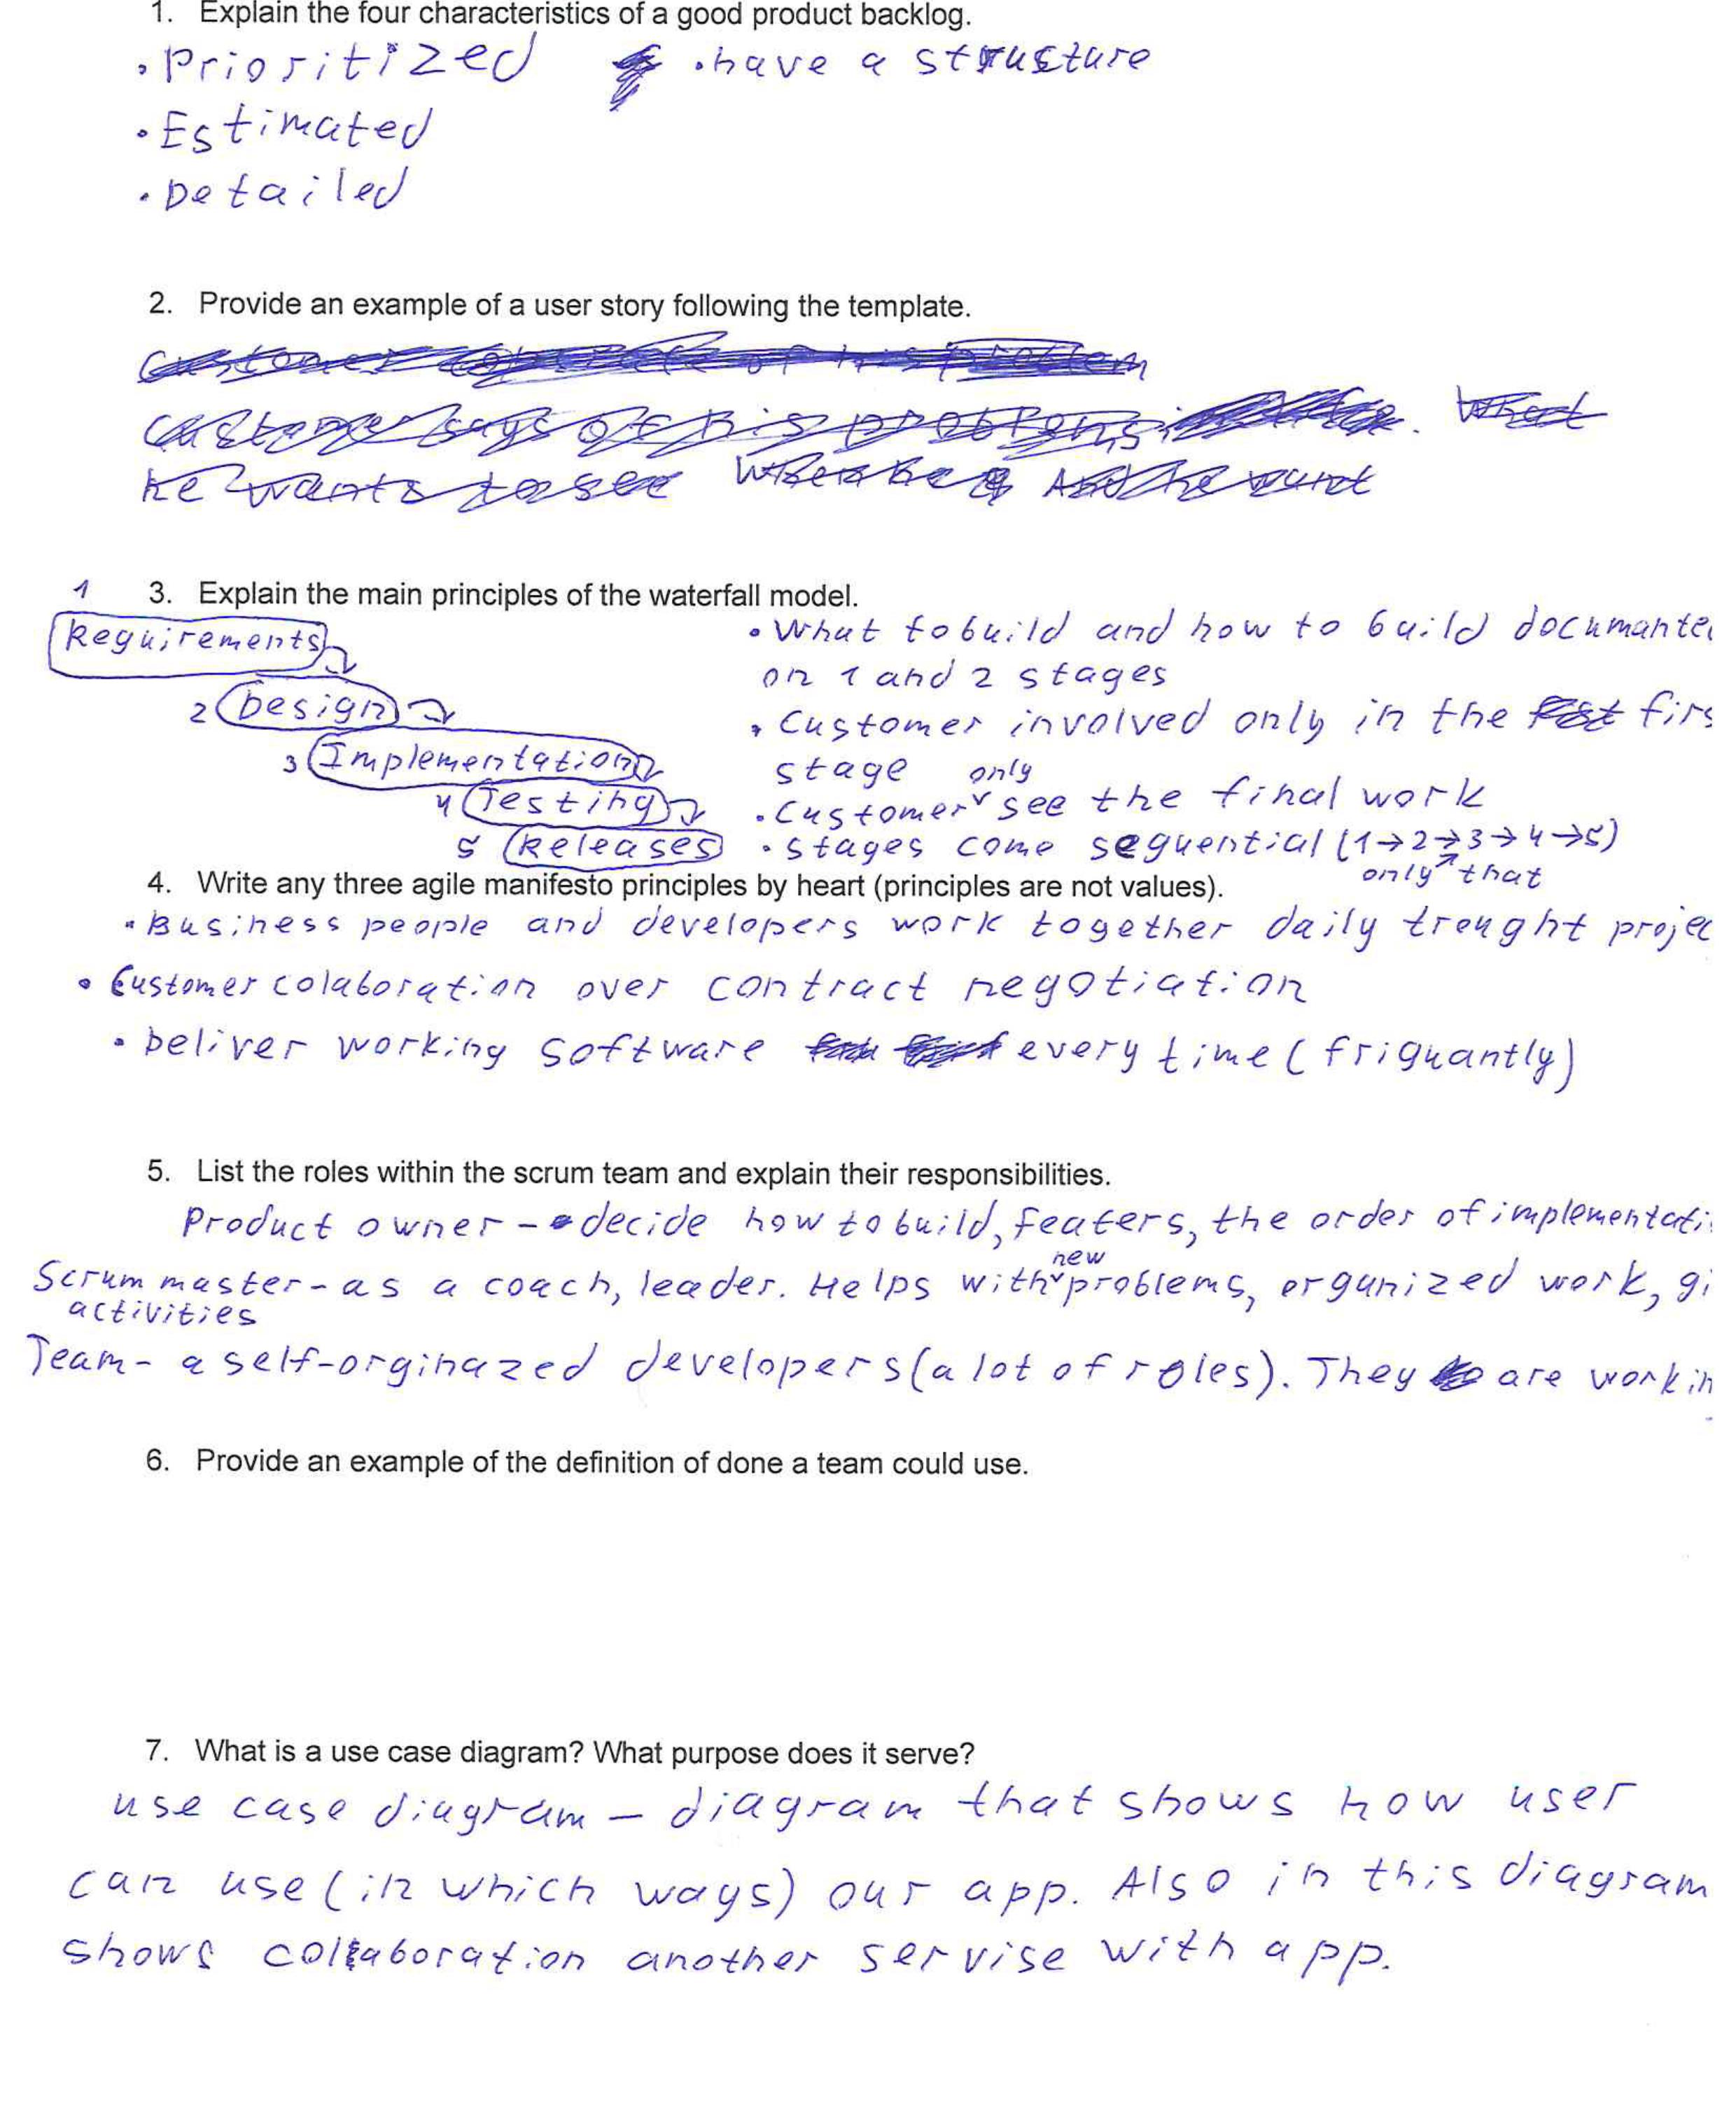 1. Explain the four characteristics of a good product backlog.
• Prioritized • have a structure
• Estimated
• Detailed
2. Provide an example of a user story following the template.
Customer of his problem
Customer says of his problems. What
he wants to see When he And he want
1 3. Explain the main principles of the waterfall model.
Requirements
2 Design
3 Implementation
4 Testing
5 Releases
• What to build and how to build documante
on 1 and 2 stages
• Customer involved only in the firs
stage only
• Customer see the final work
• stages come sequential (1→2→3→4→5)
only that
4. Write any three agile manifesto principles by heart (principles are not values).
• Business people and developers work together daily trought projec
• Customer colaboration over contract negotiation
• Deliver working software every time (friquantly)
5. List the roles within the scrum team and explain their responsibilities.
Product owner - decide how to build, featers, the order of implementati
new
Scrum master - as a coach, leader. Helps with problems, organized work, gi
activities
Team - a self-orginazed developers (a lot of roles). They are workin
6. Provide an example of the definition of done a team could use.
7. What is a use case diagram? What purpose does it serve?
use case diagram - diagram that shows how user
can use (in which ways) our app. Also in this diagram
shows collaboration another servise with app.